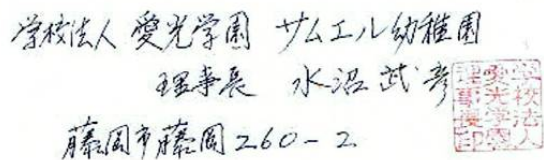 学校法人 愛光学園 サムエル幼稚園
理事長 水沼武彦
藤岡市藤岡260-2
学校法人
愛光学園
理事長印